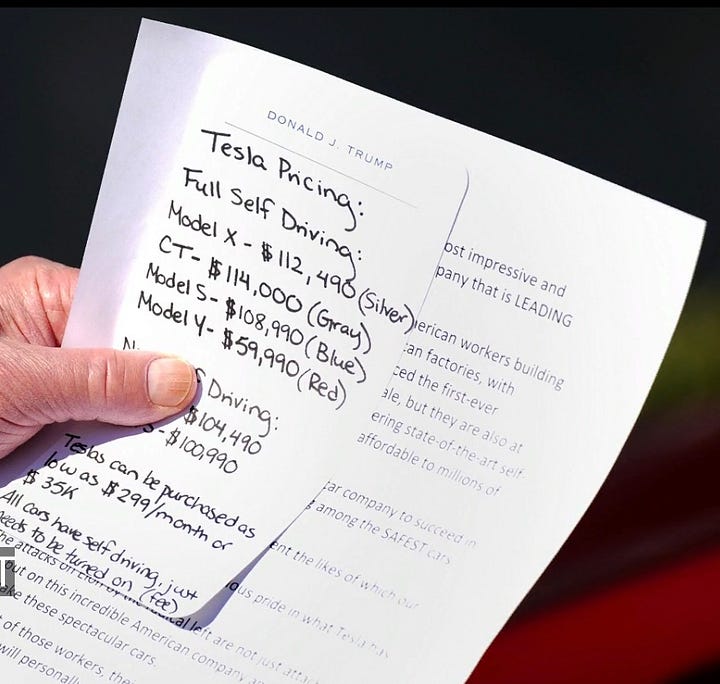 DONALD J. TRUMP
Tesla Pricing:
Full Self Driving:
Model X - $112,490 (Silver)
CT - $114,000 (Gray)
Model S - $108,990 (Blue)
Model Y - $59,990 (Red)
Driving:
$104,490
S - $100,990
Teslas can be purchased as
low as $299/month or
$35K
All cars have self driving, just
needs to be turned on (fee)
ost impressive and
pany that is LEADING
erican workers building
an factories, with
ced the first-ever
ale, but they are also at
ering state-of-the-art self-
affordable to millions of
car company to succeed in
among the SAFEST cars
ent the likes of which our
ous pride in what Tesla has
The attacks on Elon by the radical left are not just attac
out on this incredible American company a
ake these spectacular cars.
t of those workers, thei
will personally